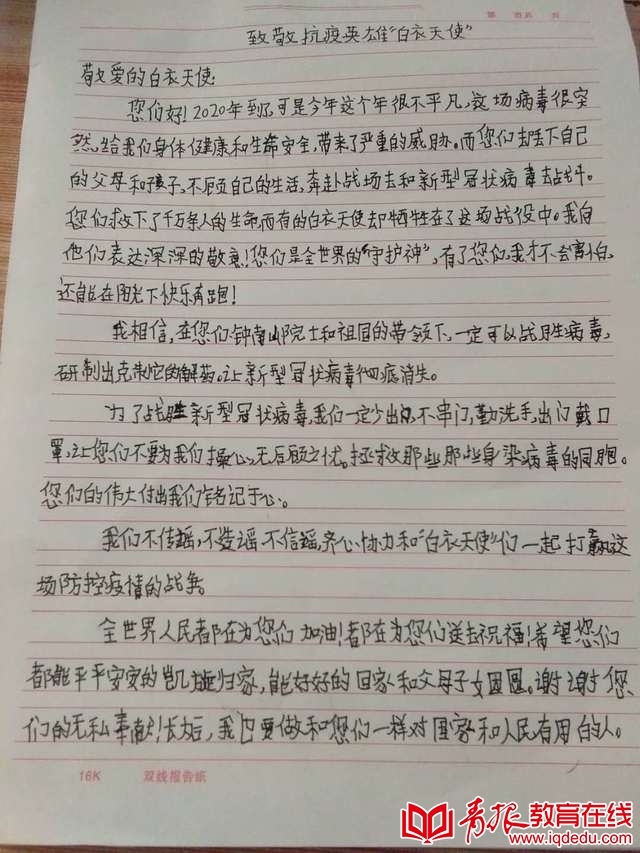 第 页 共 页
致敬抗疫英雄"白衣天使"
敬爱的白衣天使:
您们好!2020年到了,可是今年这个年很不平凡,这场病毒很突
然,给我们身体健康和生命安全,带来了严重的威胁。而您们却丢下自己
的父母和孩子,不顾自己的生活,奔赴战场去和新型冠状病毒去战斗。
您们救下了千万条人的生命,而有的白衣天使却牺牲在了这场战役中。我向
他们表达深深的敬意!您们是全世界的"守护神",有了您们,我才不会害怕,
还能在阳光下快乐奔跑!
我相信,在您们、钟南山院士和祖国的带领下,一定可以战胜病毒,
研制出克制它的解药。让新型冠状病毒彻底消失。
为了战胜新型冠状病毒,我们一定少出门,不串门,勤洗手,出门戴口
罩,让您们不要为我们操心,无后顾之忧。拯救那些那些身染病毒的同胞。
您们的伟大付出我们铭记于心。
我们不传谣,不造谣,不信谣,齐心协力和"白衣天使"们一起打赢这
场防控疫情的战争。
全世界人民都在为您们加油!都在为您们送去祝福!希望您们
都能平平安安的凯旋归家,能好好的回家和父母子女团圆。谢谢您
们的无私奉献!长大后,我也要做和您们一样对国家和人民有用的人。
16K 双线报告纸
青报教育在线
www.iqdedu.com